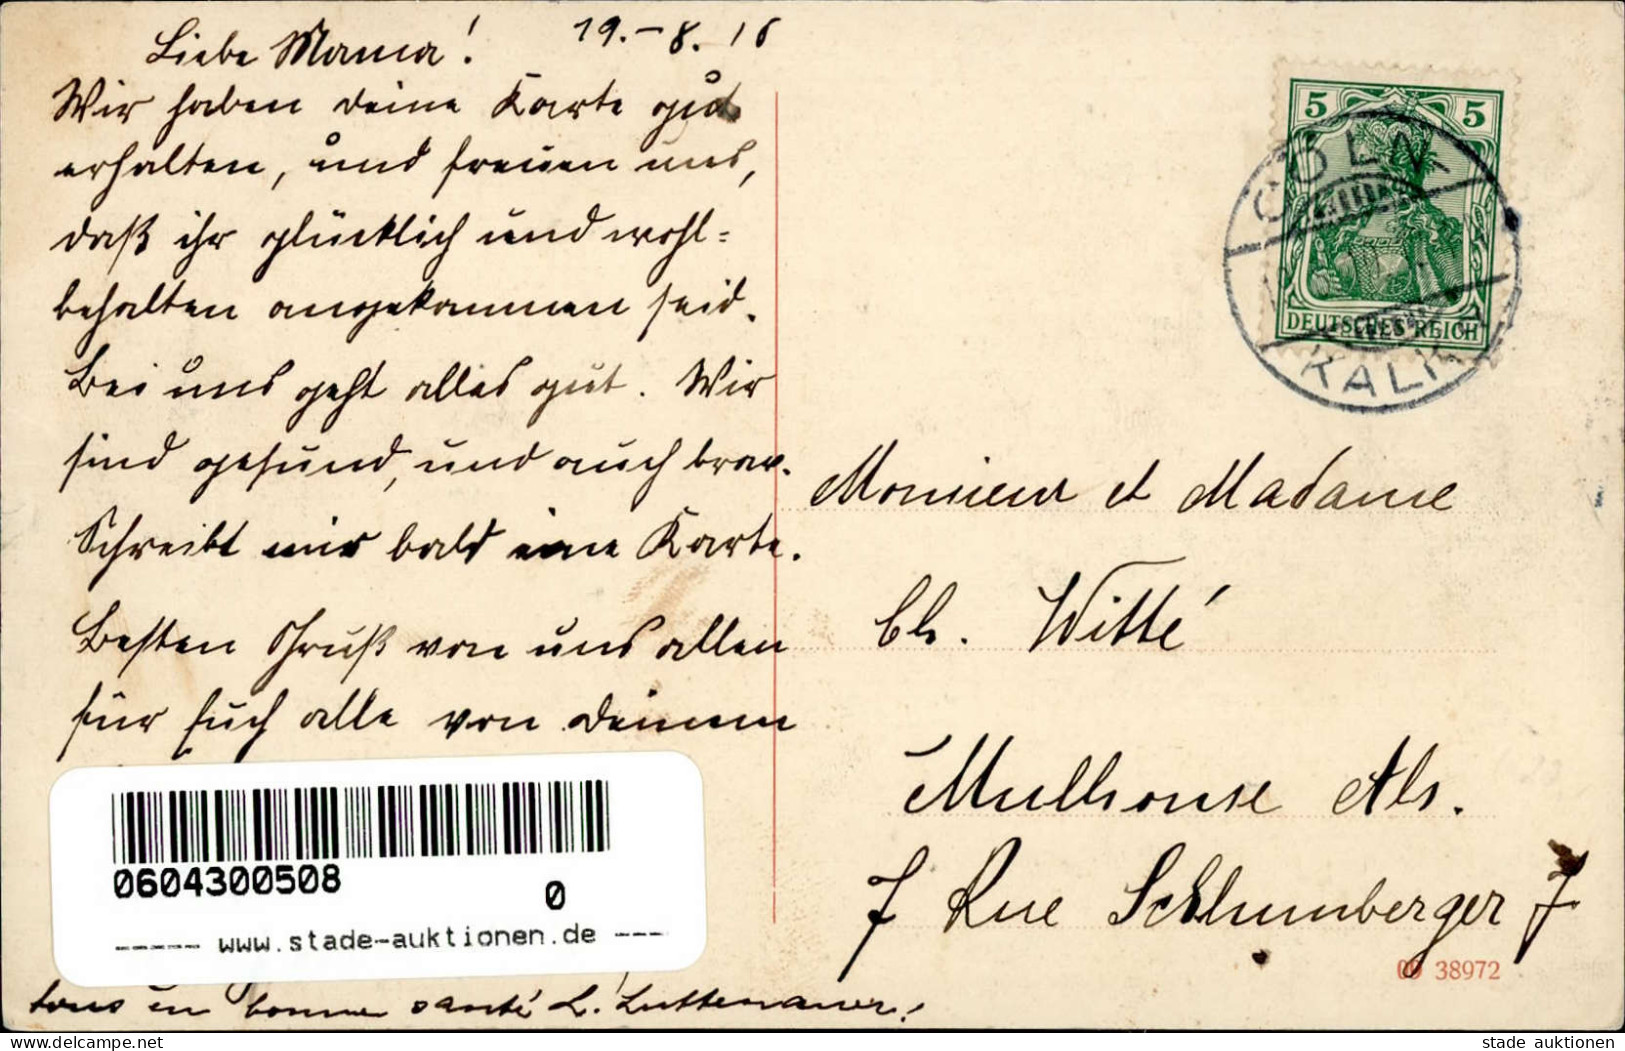 19.-8. 16
Liebe Mama!
Wir haben deine Karte gut
erhalten, und freuen uns,
daß ihr glücklich und wohl=
behalten angekommen seid.
Bei uns geht alles gut. Wir
sind gesund, und auch brav.
Schreibt mir bald eine Karte.
Besten Gruß von uns allen
für Euch alle von deinem
tous en bonne santé L. Luttenauer!
5 5
DEUTSCHES REICH
CÖLN
KALK
Monsieur et Madame
Ch. Witté
Mulhouse Als.
7 Rue Schlumberger 7
09 38972
0604300508
0
----- www.stade-auktionen.de ---
stade auktionen